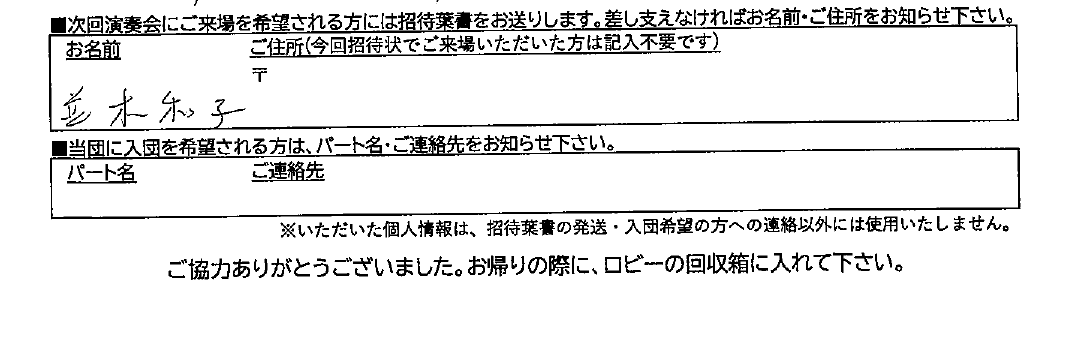 ■次回演奏会にご来場を希望される方には招待葉書をお送りします。差し支えなければお名前・ご住所をお知らせ下さい。
お名前 ご住所(今回招待状でご来場いただいた方は記入不要です)
〒
並木和子
■当団に入団を希望される方は、パート名・ご連絡先をお知らせ下さい。
パート名 ご連絡先
※いただいた個人情報は、招待葉書の発送・入団希望の方への連絡以外には使用いたしません。
ご協力ありがとうございました。お帰りの際に、ロビーの回収箱に入れて下さい。